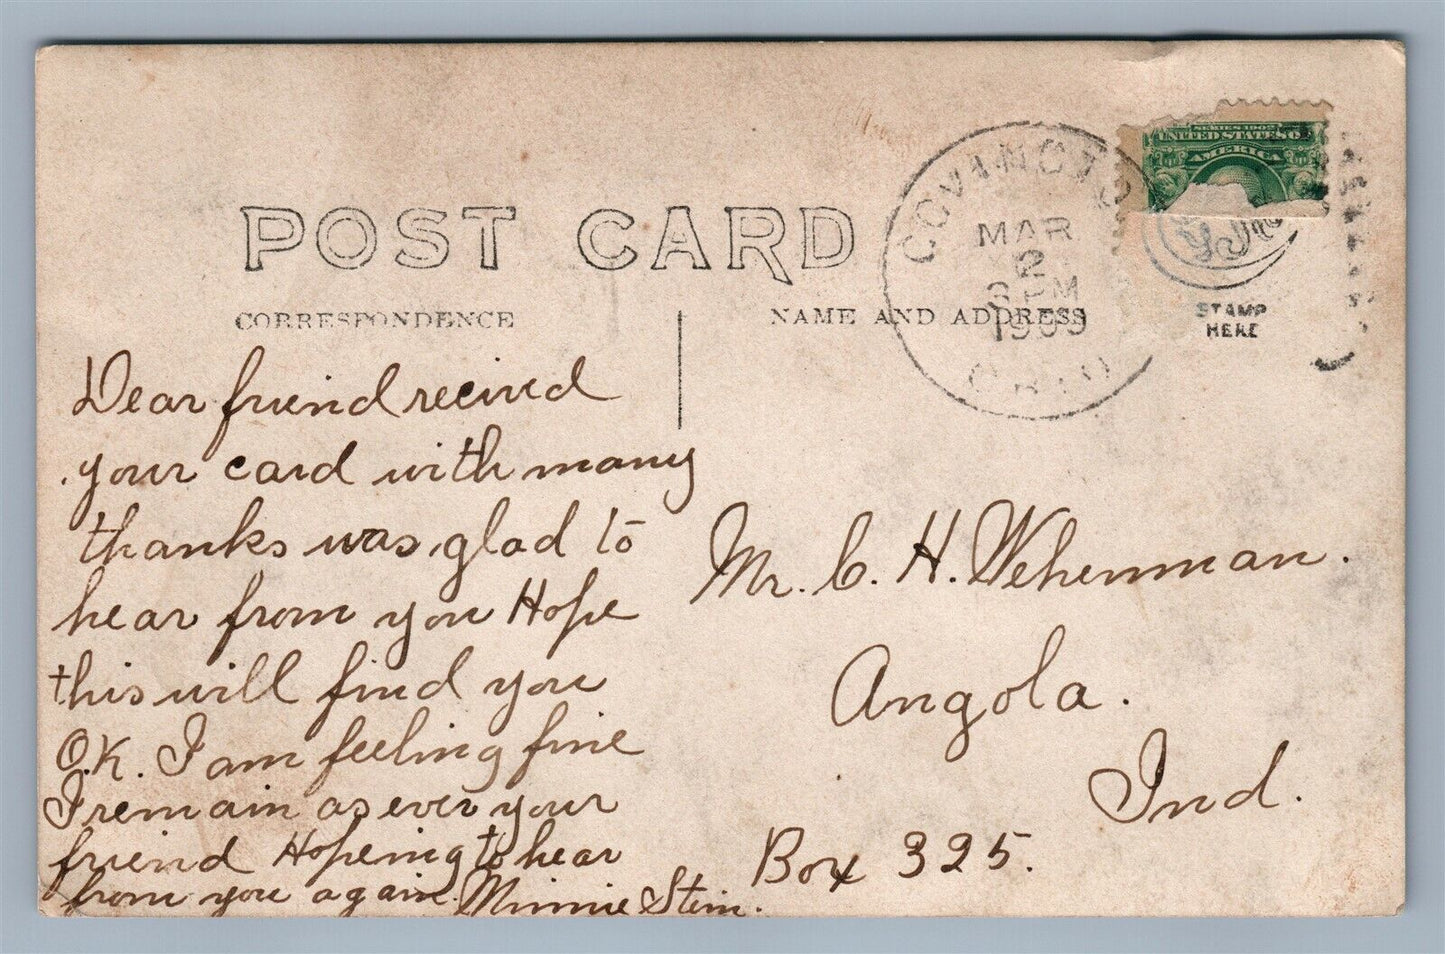 POST CARD
CORRESPONDENCE
NAME AND ADDRESS
COVINGTO
MAR
2
3 PM
1909
OHIO
SERIES 1902
UNITED STATES O
AMERICA
STAMP
HERE
Dear friend recived
your card with many
thanks was glad to
hear from you Hope
this will find you
O.K. I am feeling fine
I remain as ever your
friend Hopeing to hear
from you again. Minnie Stein.
Mr. C. H. Wehenman.
Angola.
Ind.
Box 325.